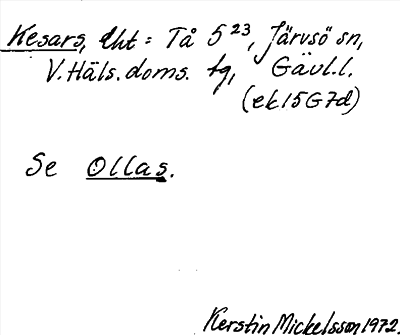 Kesars, eht = Tå 5²³, Järvsö sn,
V. Häls. doms. tg, Gävl. l.
(ek 15 G 7d)
Se Ollas.
Kerstin Mickelsson 1972.